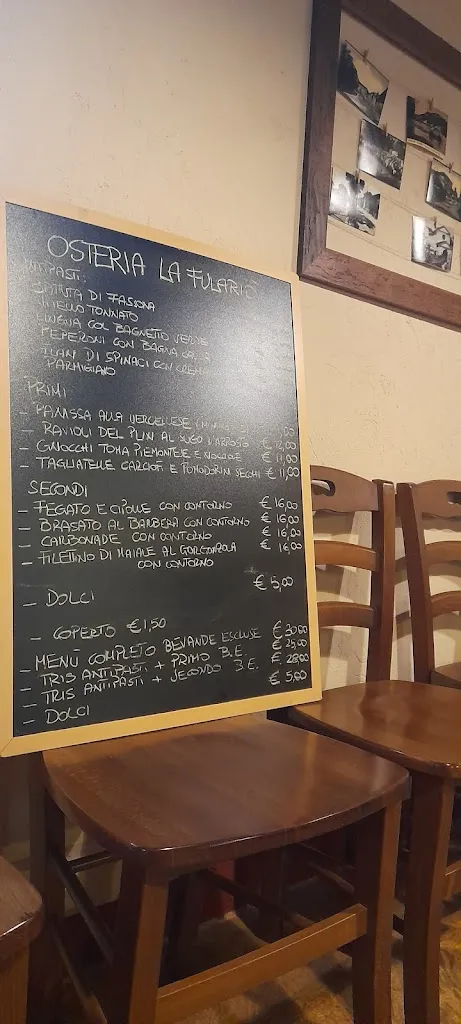 OSTERIA LA FULARIS
ANTIPASTI:
BATTUTA DI FASSONA
VITELLO TONNATO
LINGUA COL BAGNETTO VERDE
PEPERONI CON BAGNA CAUDA
FLAN DI SPINACI CON CREMA
PARMIGIANO
PRIMI:
- PANISSA ALLA VERCELLESE
- RAVIOLI DEL PLIN AL SUGO D'ARROSTO € 12,00
- GNOCCHI TOMA PIEMONTESE E NOCCIOLE € 11,00
- TAGLIATELLE CARCIOFI E POMODORINI SECCHI € 11,00
SECONDI
- FEGATO E CIPOLLE CON CONTORNO € 16,00
- BRASATO AL BARBERA CON CONTORNO € 16,00
- CARBONADE CON CONTORNO € 16,00
- FILETTINO DI MAIALE AL GORGONZOLA € 16,00
CON CONTORNO
- DOLCI € 5,00
- COPERTO € 1,50
- MENÙ COMPLETO BEVANDE ESCLUSE € 30,00
- TRIS ANTIPASTI + PRIMO B.E. € 25,00
- TRIS ANTIPASTI + SECONDO B.E. € 28,00
- DOLCI € 5,00